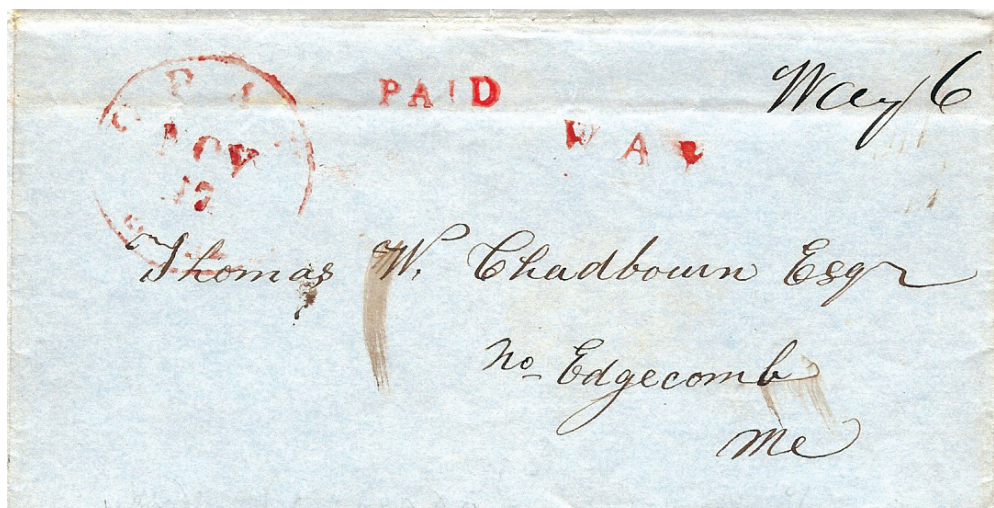 PAID
Way 6
WAY
NOV
Thomas W. Chadbourn Esqr
No Edgecomb
Me